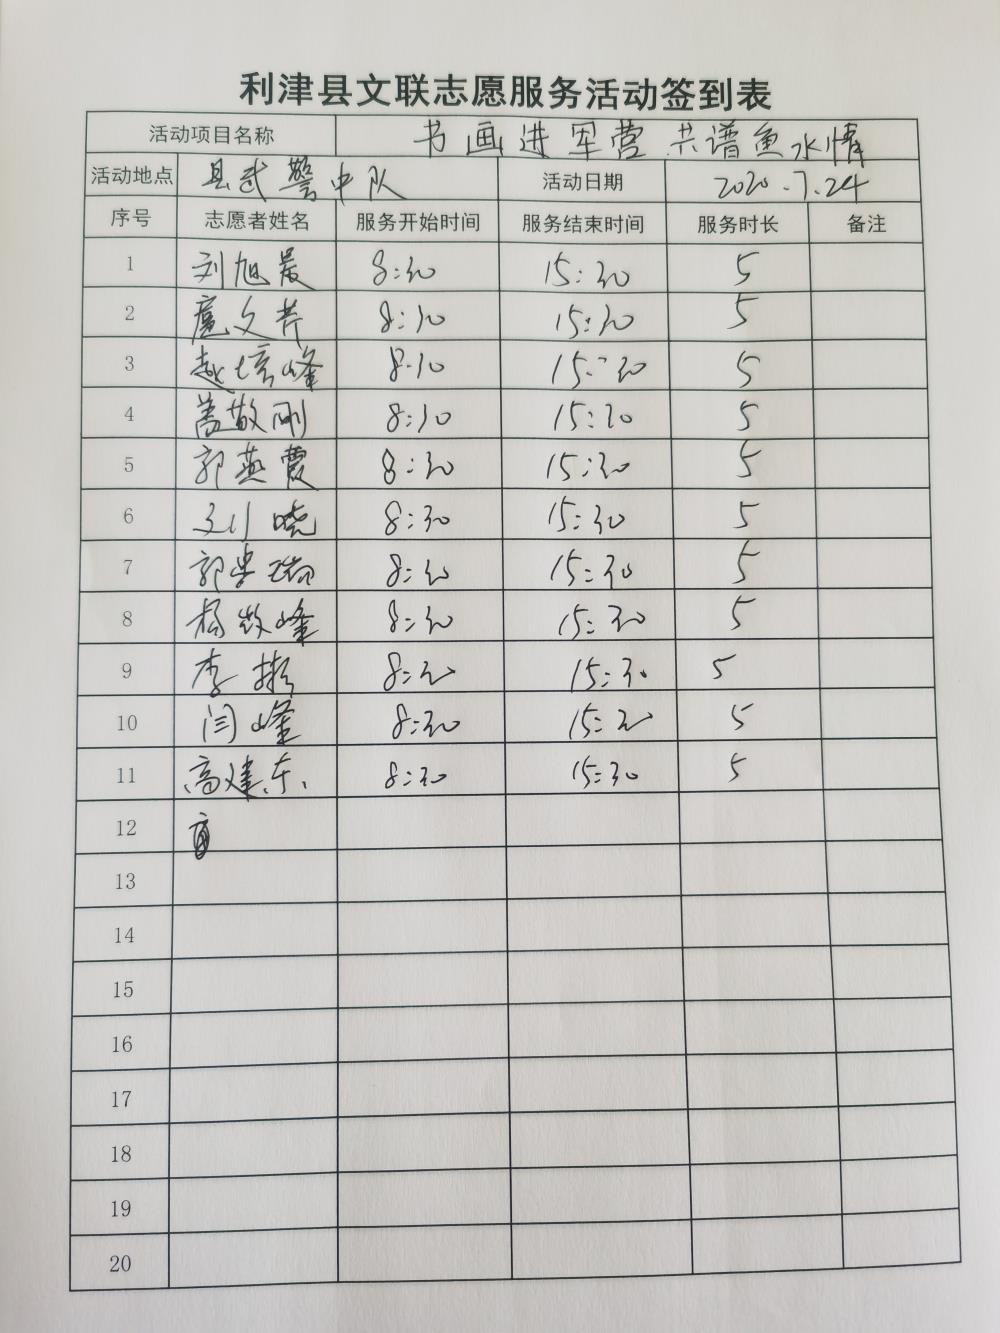 利津县文联志愿服务活动签到表
活动项目名称 书画进军营 共谱鱼水情
活动地点 县武警中队 活动日期 2020.7.24
序号 志愿者姓名 服务开始时间 服务结束时间 服务时长 备注
1 刘旭晨 8:30 15:30 5
2 扈文芹 8:30 15:30 5
3 赵培峰 8:30 15:30 5
4 盖敬刚 8:30 15:30 5
5 郭燕霞 8:30 15:30 5
6 刘晓 8:30 15:30 5
7 郭学瑞 8:30 15:30 5
8 杨峰 8:30 15:30 5
9 李振 8:30 15:30 5
10 闫峰 8:30 15:30 5
11 高建东 8:30 15:30 5
12
13
14
15
16
17
18
19
20